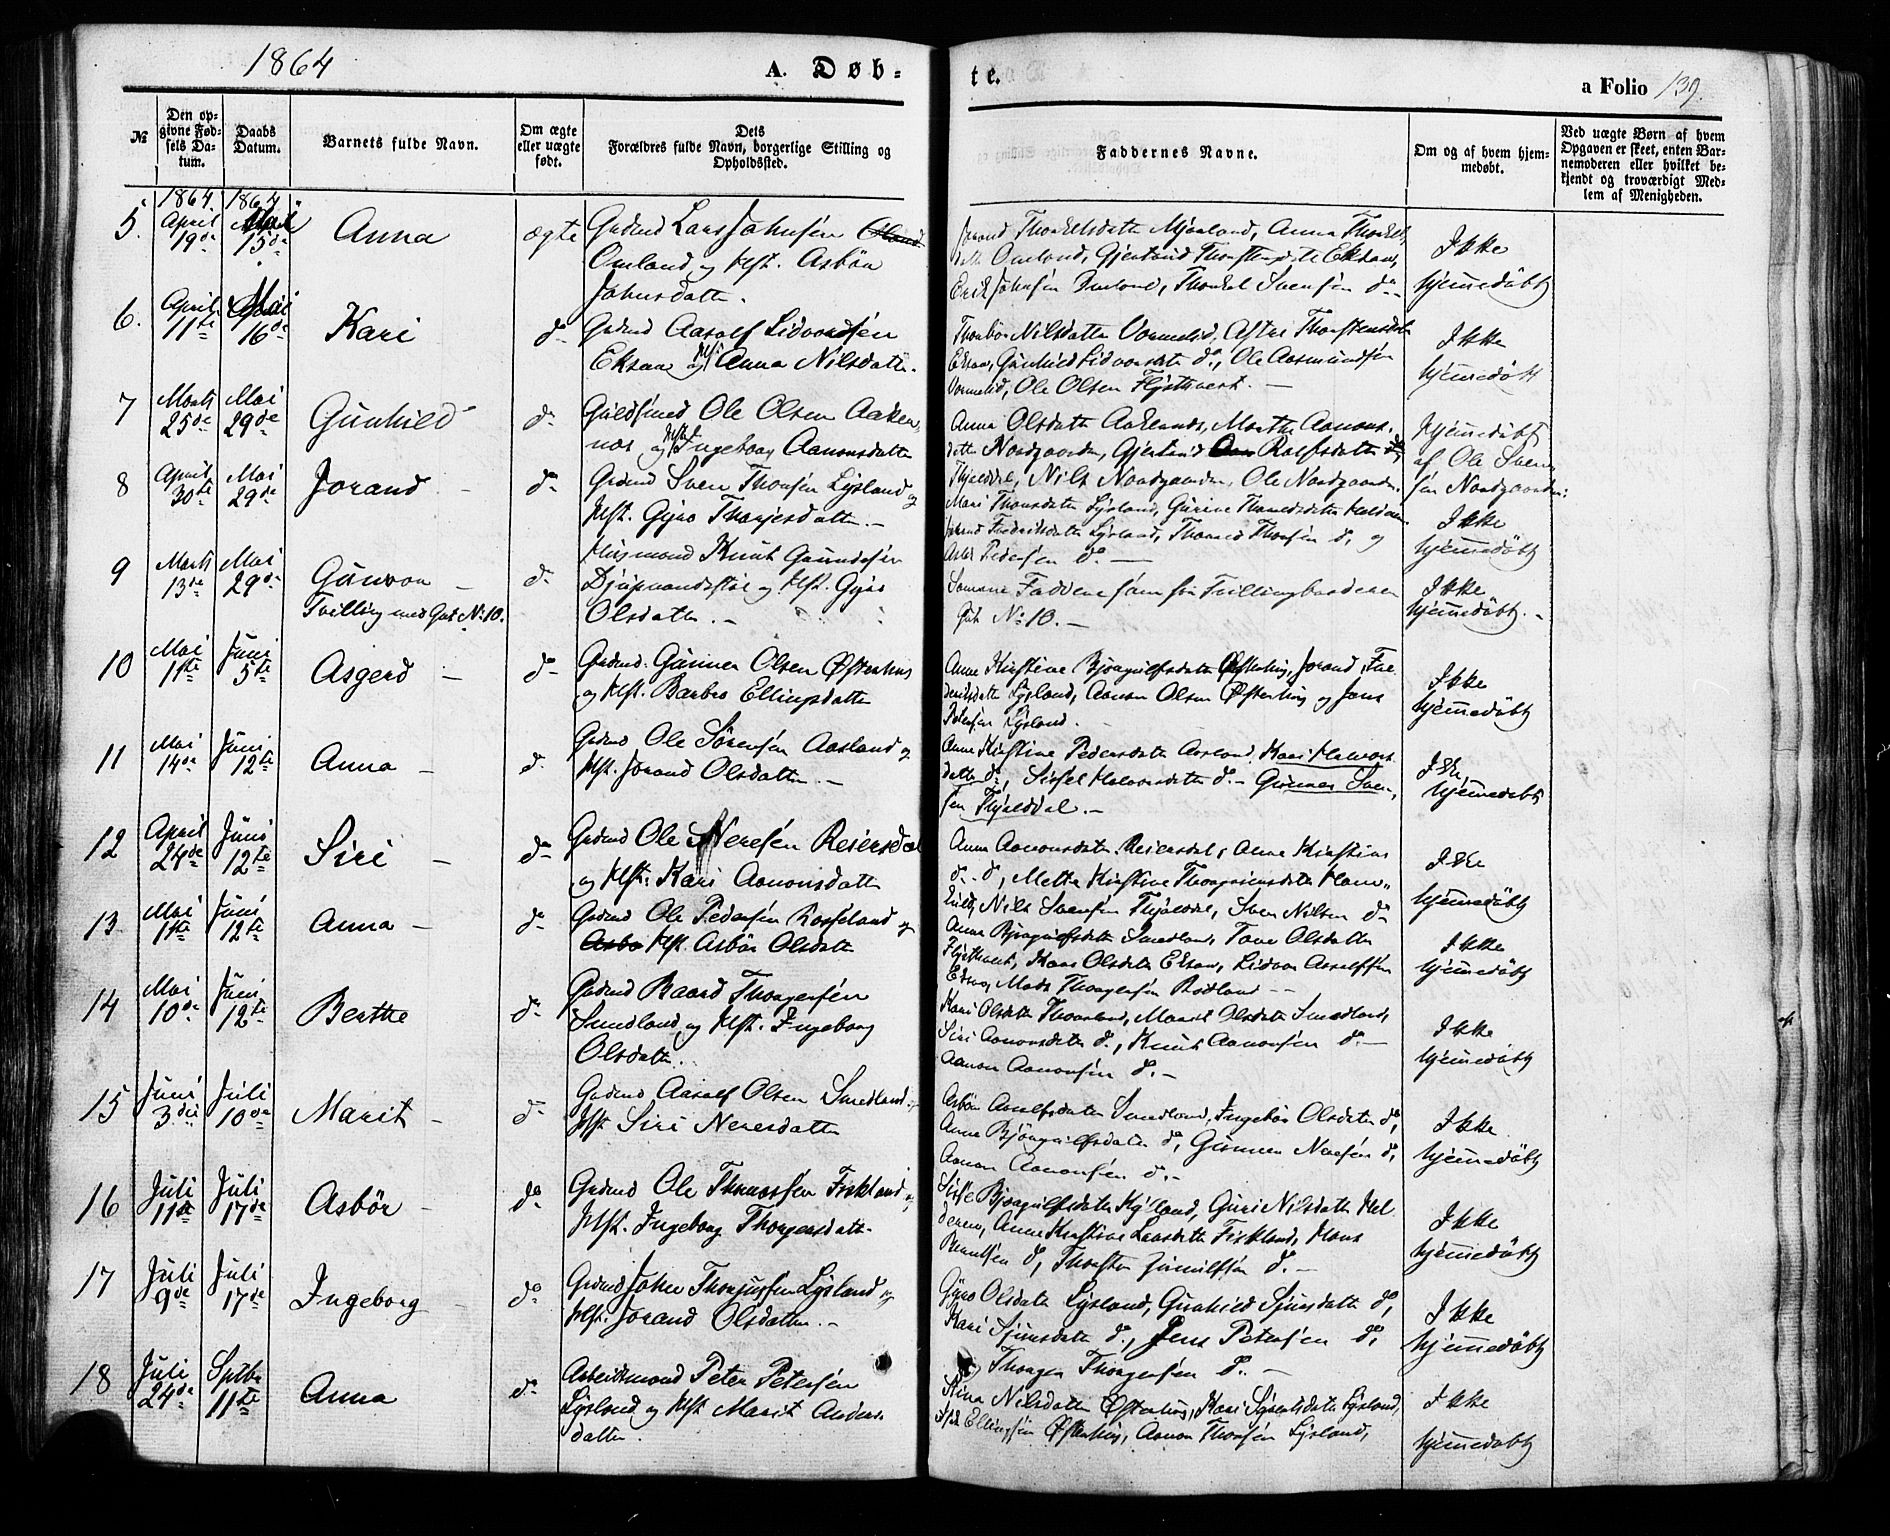 1864
A. Døb-
te.
a Folio 139.
№
Den op-
givne Fød-
sels Da-
tum.
Daabs
Datum.
Barnets fulde Navn.
Om ægte
eller uægte
født.
Dets
Forældres fulde Navn, borgerlige Stilling og
Opholdssted.
Faddernes Navne.
Om og af hvem hjem-
medøbt.
Ved uægte Børn af hvem
Opgaven er skeet, enten Bar-
nemoderen eller hvilket be-
kjendt og troværdigt Med-
lem af Menigheden.
1864. 1864
5. April 19de Mai 15de Anna ægte Grdmd Lars Johnsen
Omland og Hst. Asbør
Johnsdatter.
Jorand Thorkelsdatter Mjoaland, Anna Thorkels
datt Omland, Gjertrud Thorstensdtt Eksaae,
Erik Johnsen Omland, Thorkel Svensen do
Ikke
hjemmedöbt
6. April 11te Mai 16de Kari do Grdmd Aasolf Lidvordsen
Eksaae og Hst Anna Nilsdatter.
Thorbör Nilsdatter Vormelid, Thorstensdatter
Eksaae, Gunhild Lidvorsdtr do, Ole Aasmundsen
Vormelid, Ole Olsen Flÿsthveit.
Ikke
hjemmedöbt
7 Marts 25de Mai 29de Gunhild do Guldsmed Ole Olsen Aaken
næs og Hst Ingeborg Aanonsdatter
Anna Olsdatter Aaknæs, Marthe Aanons
datter Nordgaarden, Gjertrud Rolfsdatter
Thjeldal, Nils Nordgaarden, Ole Nordgaarden.
Hjemmedöbt
af Ole Sven
sen Nordgaarden.
8 April 30te Mai 29de Jorand do Grdmd Sven Thorsen Lÿsland og
Hst. Gÿro Therjesdatter.
Mari Thorsdatter Lÿsland, Gurine
Jorand Fredriksdatter Lÿsland, Thomes Thorsen do og
Peder Pedersen do
Ikke
hjemmedöbt
9 Marts 13de Mai 29de Gunvor
Tvilling med Gut No 10.
do Huusmand Knut Gundersen
og Hst. Gÿro
Olsdatter.
Samme Faddere som for Tvillingbroderen
Gut No 10.
Ikke
hjemmedöbt.
10 Mai 11te Juni 5te Asgerd do Grdmd. Gunner Olsen Østerhus
og Hst. Barbro Ellingsdatter
Anne Kirstine Bjorgulfsdatter Østerhus, Jorand Fre
deriksdatter Lÿsland, Aanon Olsen Østerhus og Jens
Petersen Lÿsland.
Ikke
hjemmedöbt
11 Mai 14de Juni 12te Anna do Grdmd Ole Sörensen Aasland og
Hst. Jorand Olsdatter.
Anne Kirstine Pedersdatter Aasland, Kari Halvors
datter do, Sissel Halvorsdatter do Gunner Sven
sen Thjeldal.
Ikke
hjemmedöbt
12 April 24de Juni 12te Siri do Grdmd Ole Neresen Reiersdal
og Hst. Kari Aanonsdatter
Anna Aanonsdatter Reiersdal, Anne Kirstine
do. do, Mette Kirstine Thorgrimsdatter
Nils Svensen Thjeldal, Sven Nilsen do
Ikke
hjemmedöbt
13 Mai 11te Juni 12te Anna do Grdmd Ole Pedersen Rosseland og
Asbø Hst. Asbör Olsdatter
Anne Bjorgulfsdatter Smedland, Tone Olsdatter
Flÿsthveit, Kari Olsdatter Eksaae, Lidvor Aasolfsen
Eksaae, Mads Thorgersen Rodland
Ikke
hjemmedöbt
14 Mai 10de Juni 12te Berthe do Grdmd Baard Thorgersen
Smedland og Hst. Ingeborg
Olsdatter.
Kari Olsdatter Thorland, Marit Olsdatter Smedland,
Siri Aanonsdatter do, Knut Aanonsen do
Aanon Aanonsen do.
Ikke
hjemmedöbt
15 Juni 3die Juli 10de Marit do Grdmd Aasolf Olsen Smedland og
Hst Siri Neresdatter
Asbör Aasolfsdatter Smedland, Ingebör Olsdatter do,
Anne Björgulfsdatter do, Gunner Neresen do,
Aanon Aanonsen do.
Ikke
hjemmedöbt
16 Juli 11te Juli 17de Asbör do Grdmd Ole Thomassen Fiskland og
Hst. Ingeborg Thorgersdatter
Sissel Bjorgulfsdatter Kÿland, Guri Nilsdatter Hel
deren, Anne Kirstine Larsdatter Fiskland, Hans
Berntsen do, Thorsten Gunulfsen do.
Ikke
hjemmedöbt
17 Juli 9de Juli 17de Ingeborg do Grdmd John Thorjussen Lÿsland og
Hst. Jorand Olsdatter.
Gÿro Olsdatter Lÿsland, Gunhild Sjursdatter do,
Kari Sjursdatter do., Jens Petersen do,
Thorger Thorgersen do.
Ikke
hjemmedöbt
18 Juli 24de Sptbr 11te Anna do Arbeidsmand Peter Petersen
Lÿsland og Hst Marit Anders
datter.
Stina Nilsdatter Østerhus, Kari Syvertsdatter Lÿsland,
Ellingsen Østerhus, Aanon Thorsen Lÿsland,
Ikke
hjemmedöbt